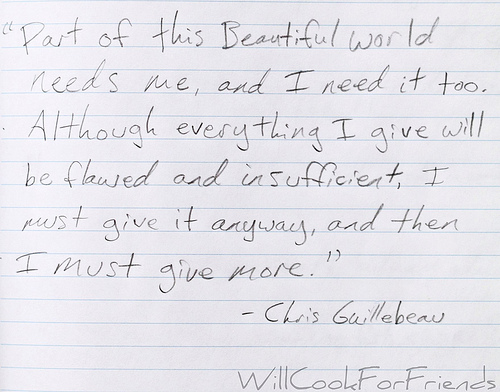 "Part of this Beautiful world
needs me, and I need it too.
Although everything I give will
be flawed and insufficient, I
must give it anyway, and then
I must give more."
- Chris Guillebeau
WillCookForFriends